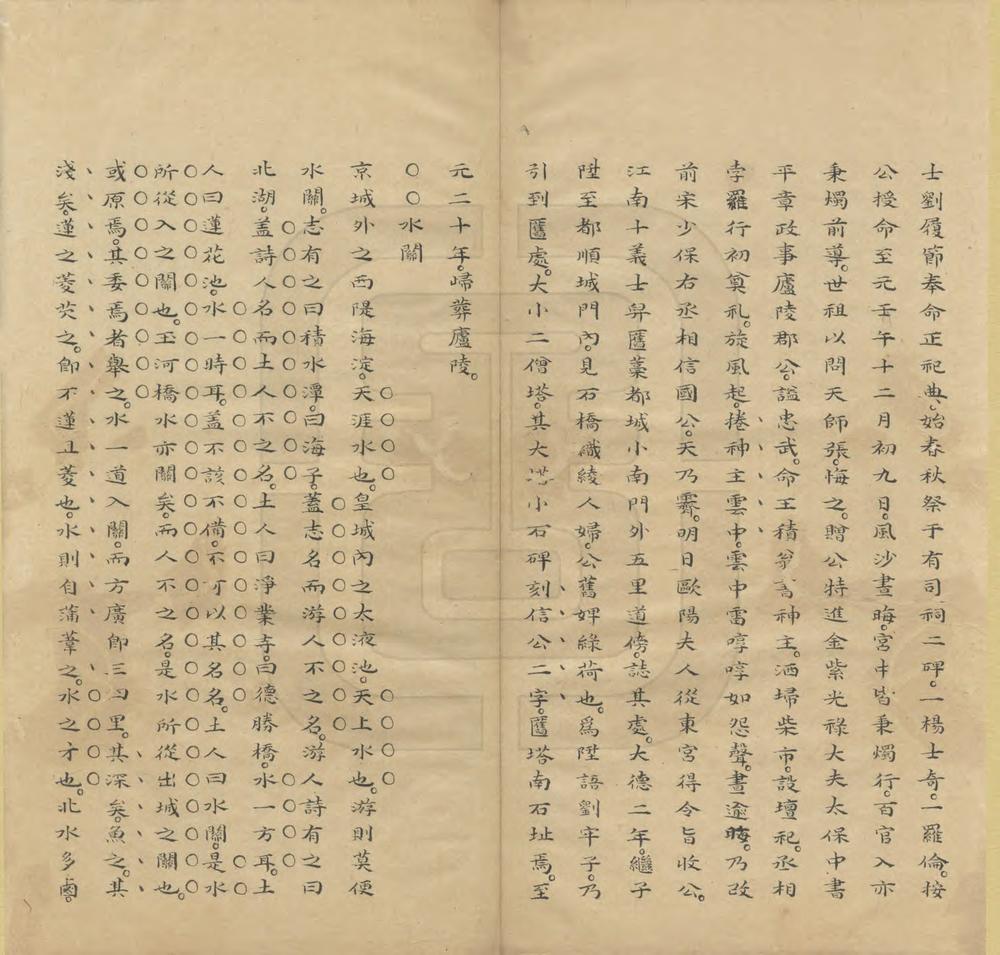 士劉履節奉命正祀典。始春秋祭于有司祠二碑。一楊士奇。一羅倫。按
公授命至元壬午十二月初九日。風沙晝晦。宮中皆秉燭行。百官入亦
秉燭前導。世祖以問天師張。悔之。贈公特進金紫光祿大夫太保中書
平章政事廬陵郡公。謚忠武。命王積翁書神主。洒埽柴市。設壇祀。丞相
孛羅行初奠礼。旋風起。捲神主雲中。雲中雷哼哼如怨聲。晝逾晦。乃改
前宋少保右丞相信國公。天乃霽。明日歐陽夫人從東宮得令旨收公。
江南十義士舁匶藁都城小南門外五里道傍。誌其處。大德二年。繼子
陞至都順城門內。見石橋織綾人婦。公舊婢綠荷也。爲陞語劉牢子。乃
引到匶處。大小二僧塔。其大塔小石碑刻信公二字。匶塔南石址焉。至
元二十年。歸葬廬陵。
〇〇水關
京城外之西隄海淀。天涯水也。皇城內之太液池。天上水也。游則莫便
水關。志有之曰積水潭。曰海子。蓋志名而游人不之名。游人詩有之曰
北湖。蓋詩人名而土人不之名。土人曰淨業寺。曰德勝橋。水一方耳。土
人曰蓮花池。水一時耳。蓋不該不備。不可以其名名。土人曰水關。是水
所從入之關也。玉河橋水亦關矣。而人不之名。是水所從出城之關也。
或原焉。其委焉者舉之。水一道入關。而方廣即三四里。其深矣。魚之。其
淺矣。蓮之菱芡之。即不蓮且菱也。水則自蒲葦之。水之才也。北水多鹵。